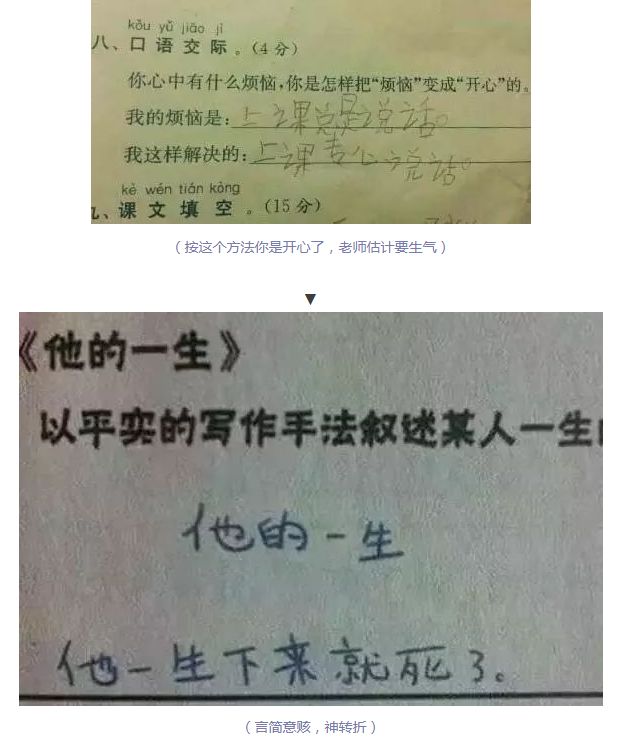 kǒu yǔ jiāo jì
八、口 语 交 际 。(4 分)
你心中有什么烦恼,你是怎样把“烦恼”变成“开心”的。
我的烦恼是:上课总是说话。
我这样解决的:上课专心说话。
kè wén tián kòng
九、课 文 填 空 。(15 分)
（按这个方法你是开心了，老师估计要生气）
▼
《他的一生》
以平实的写作手法叙述某人一生
他的一生
他一生下来就死了。
（言简意赅，神转折）